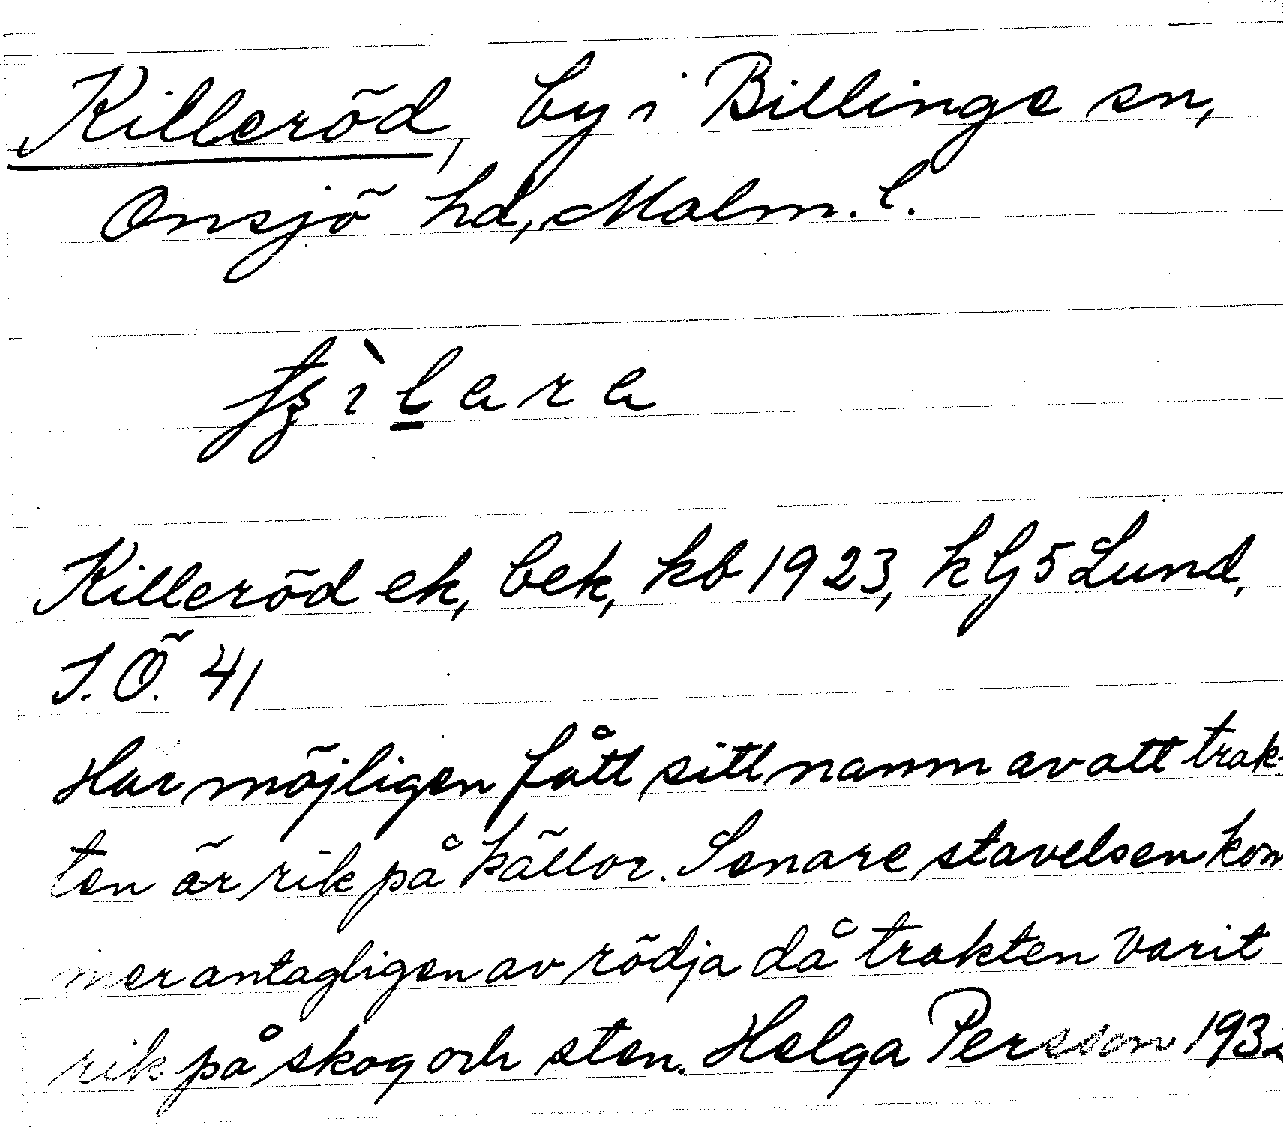 Killeröd, by i Billinge sn,
Onsjö hd, Malm. l.
Killeröd ek, bek, kb 1923, k G 5 Lund,
S. Ö. 41
Har möjligen fått sitt namn av att trak-
ten är rik på källor. Senare stavelsen kom
mer antagligen av rödja då trakten varit
rik på skog och sten. Helga Persson 1932